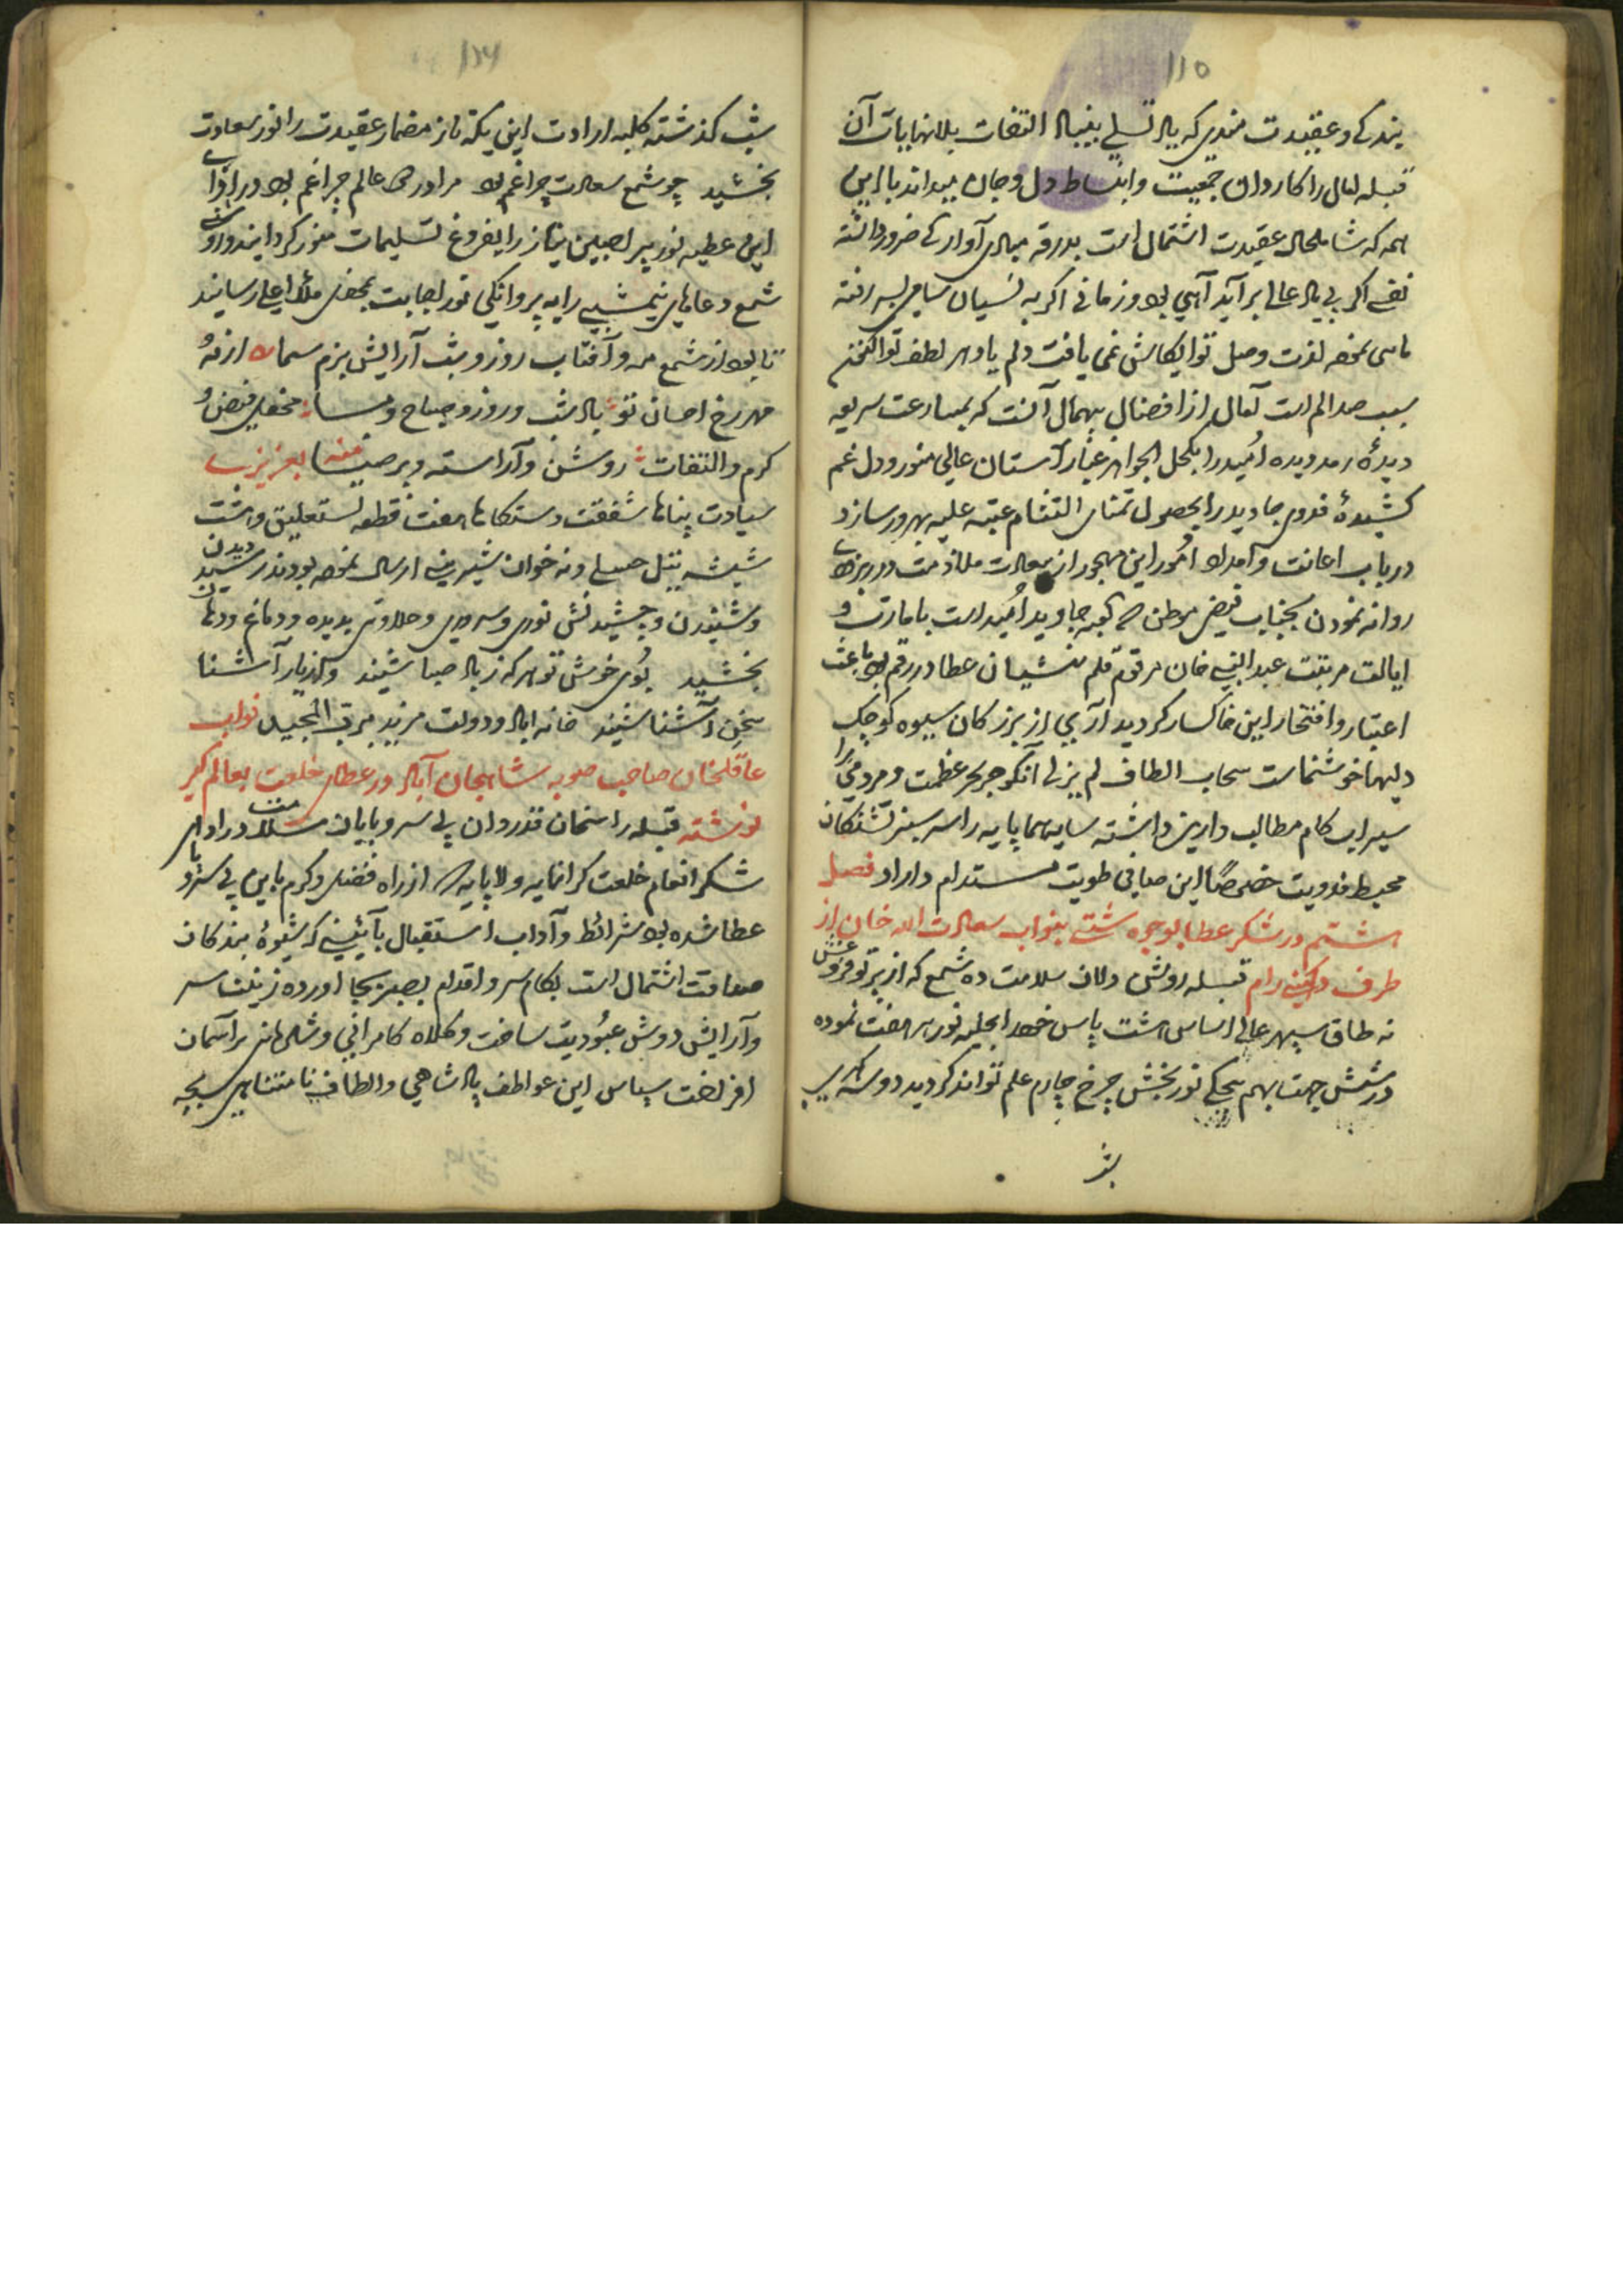 ۱۱۵
بندگی و عقیدت مندی که یاد تسلی بنیاد التفات بلانهایات آن
قبله آمال را کاروان جمعیت و انبساط دل و جان میداند با این
همه که شامل حال عقیدت اشتمال است بدرقه مبادی
نفسی اگر بی یاد عالی برآید آهی بود و زمانی اگر به نسیان سامی بسر رفته
لذت وصل تو غمی یافت دلم یاد هر لطف تو
سبب صد الم است آمال از افضال بیهمال آنست که بمسارعت سریعه
دیدهٔ رمد دیده امید را بکحل الجواهر غبار آستان عالی منور و دل غم
کشیدهٔ فدوی جاوید را بحصول تمنای التثام عتبه علیه بهرور سازد
در باب اعانت و امداد امور این مهجور از سعادت ملازمت
روانه نمودن بجناب فیض موطن کعبه جاوید امید است با مارت و
ایالت مرتبت عبد النبی خان مرقوم قلم منشیان عطارد رقم بود باعث
اعتبار و افتخار این خاکسار گردید آری از بزرگان سیوه کوچک
دلیها خوشنماست سحاب الطاف لم یزلی آن گوهر بحر عظمت و مردمی را
سیراب کام مطالب دارین داشته سایه هما پایه را سر سبز تشنگان
محیط فدویت خصوصاً این صافی طویت مستدام داراد فصل
هشتم در شکر عطا بوجوه شتی بنواب سعادت الله خان از
طرف رام قبسله روشن دلان سلامت ده شمع که از پرتو فروغش
نه طاق سپهر عالی اساس هشت پاس خود را بجلیه نور هر هفت نموده
در شش جهت بهم پنجگی نور بخش چرخ چارم علم تواند گردید دو سه
شب
۱۱۶
شب گذشته کلبه ارادت این یکه تاز مضمار عقیدت را نور سعادت
بخشید چو شمع سعادت چراغم بود مرا در دو عالم چراغم بود در ازای
این عطیه نور پیرا جبین نیاز را بفروغ تسلیمات منور گردانیده و روشنی
شمع دعاهای نیم شبی را به پروانگی نور اجابت بمحفل ملأ اعلی رسانید
تا بود از شمع مه و آفتاب روز و شب آرایش بزم سما از
مهر رخ احسان تو باد شب و روز و صباح و مسا محفل فیض و
کرم و التفات روشن و آراسته و پر ضیا منه بعزیزی
سیادت پناها شفقت دستگاها هفت قطعه نستعلیق و هشت
شیشه تیل چنبیلی و نه خوان شیرینی ارسال نموده بودند رسید دیدن
و شنیدن و چشیدنش نوری و سروری و حلاوتی بدیده و دماغ و دهان
بخشید بوی خوش تو هر که ز باد صبا شنید از یار آشنا
سخن آشنا شنید خانه آباد و دولت مزید برب المجید نواب
عاقلخان صاحب صوبه شاهجهان آباد در عطای خلعت بعالم گیر
نوشته قبله راسخان قدردان بی سر و پایان سلامت در ادای
شکر انعام خلعت گرانمایه والا پایه که از راه فضل و کرم باین بی سر و پا
عطا شده بود شرائط و آداب استقبال بآئینی که شیوهٔ بندگان
صداقت اشتمال است بکام سر و اقدام بصر بجا آورده زینت سر
و آرایش دوش عبودیت ساخت و کلاه کامرانی و شادمانی بر آسمان
افراخت سپاس این عواطف پادشاهی و الطاف نامتناهی بچه